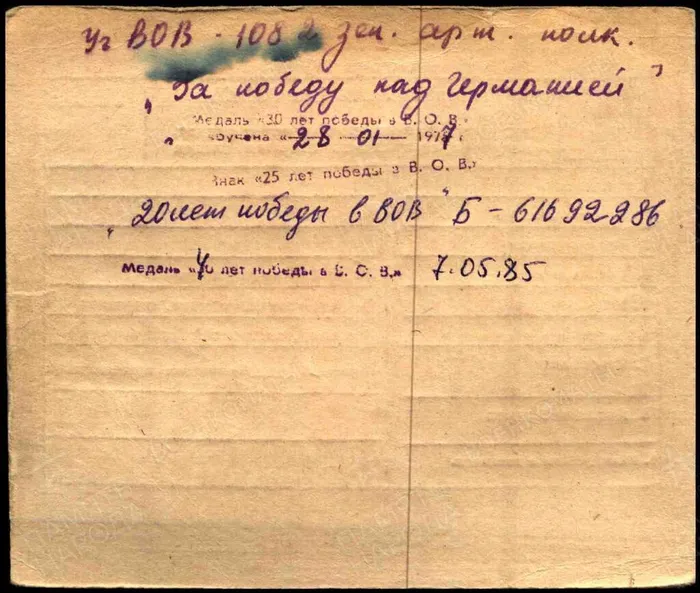 Уч ВОВ - 1082 зен. арт. полк.
„За победу над Германией"
Медаль «30 лет победы в В. О. В.»
вручена «28 01 1977 г
Знак «25 лет победы в В. О. В.»
„20 лет победы в ВОВ" Б - 6169 2286
Медаль «40 лет победы в В. О. В.» 7.05.85
ПАМЯТЬ НАРОДА